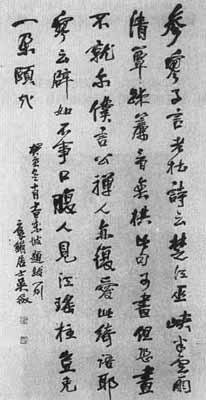 參寥子言老杜詩云楚江巫峽半雲雨
清簟疎簾看弈棋此句可畫但恐畫
不就尔僕言公禪人亦復愛此綺語耶
寥云辟如不事口腹人見江瑤柱豈免
一朵頤哉
癸亥冬十月書東坡題跋
居士吳徵